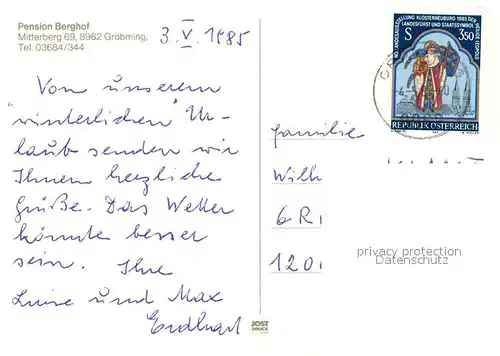 Pension Berghof
Mitterberg 69, 8962 Gröbming,
Tel. 03684/344
3. V. 1985
Von unserem
"winterlichen" Ur-
laub senden wir
Ihnen herzliche
Grüße. Das Wetter
könnte besser
sein. Ihre
Luise und Max
Erdhart
JOST
DRUCK
NÖ. LANDESAUSSTELLUNG KLOSTERNEUBURG 1985 DER
LANDESFÜRST UND STAATSSYMBOL
HEILIGE LEOPOLD
S 3.50
REPUBLIK ÖSTERREICH
Familie
Wilh
6 R i
120
privacy protection
Datenschutz